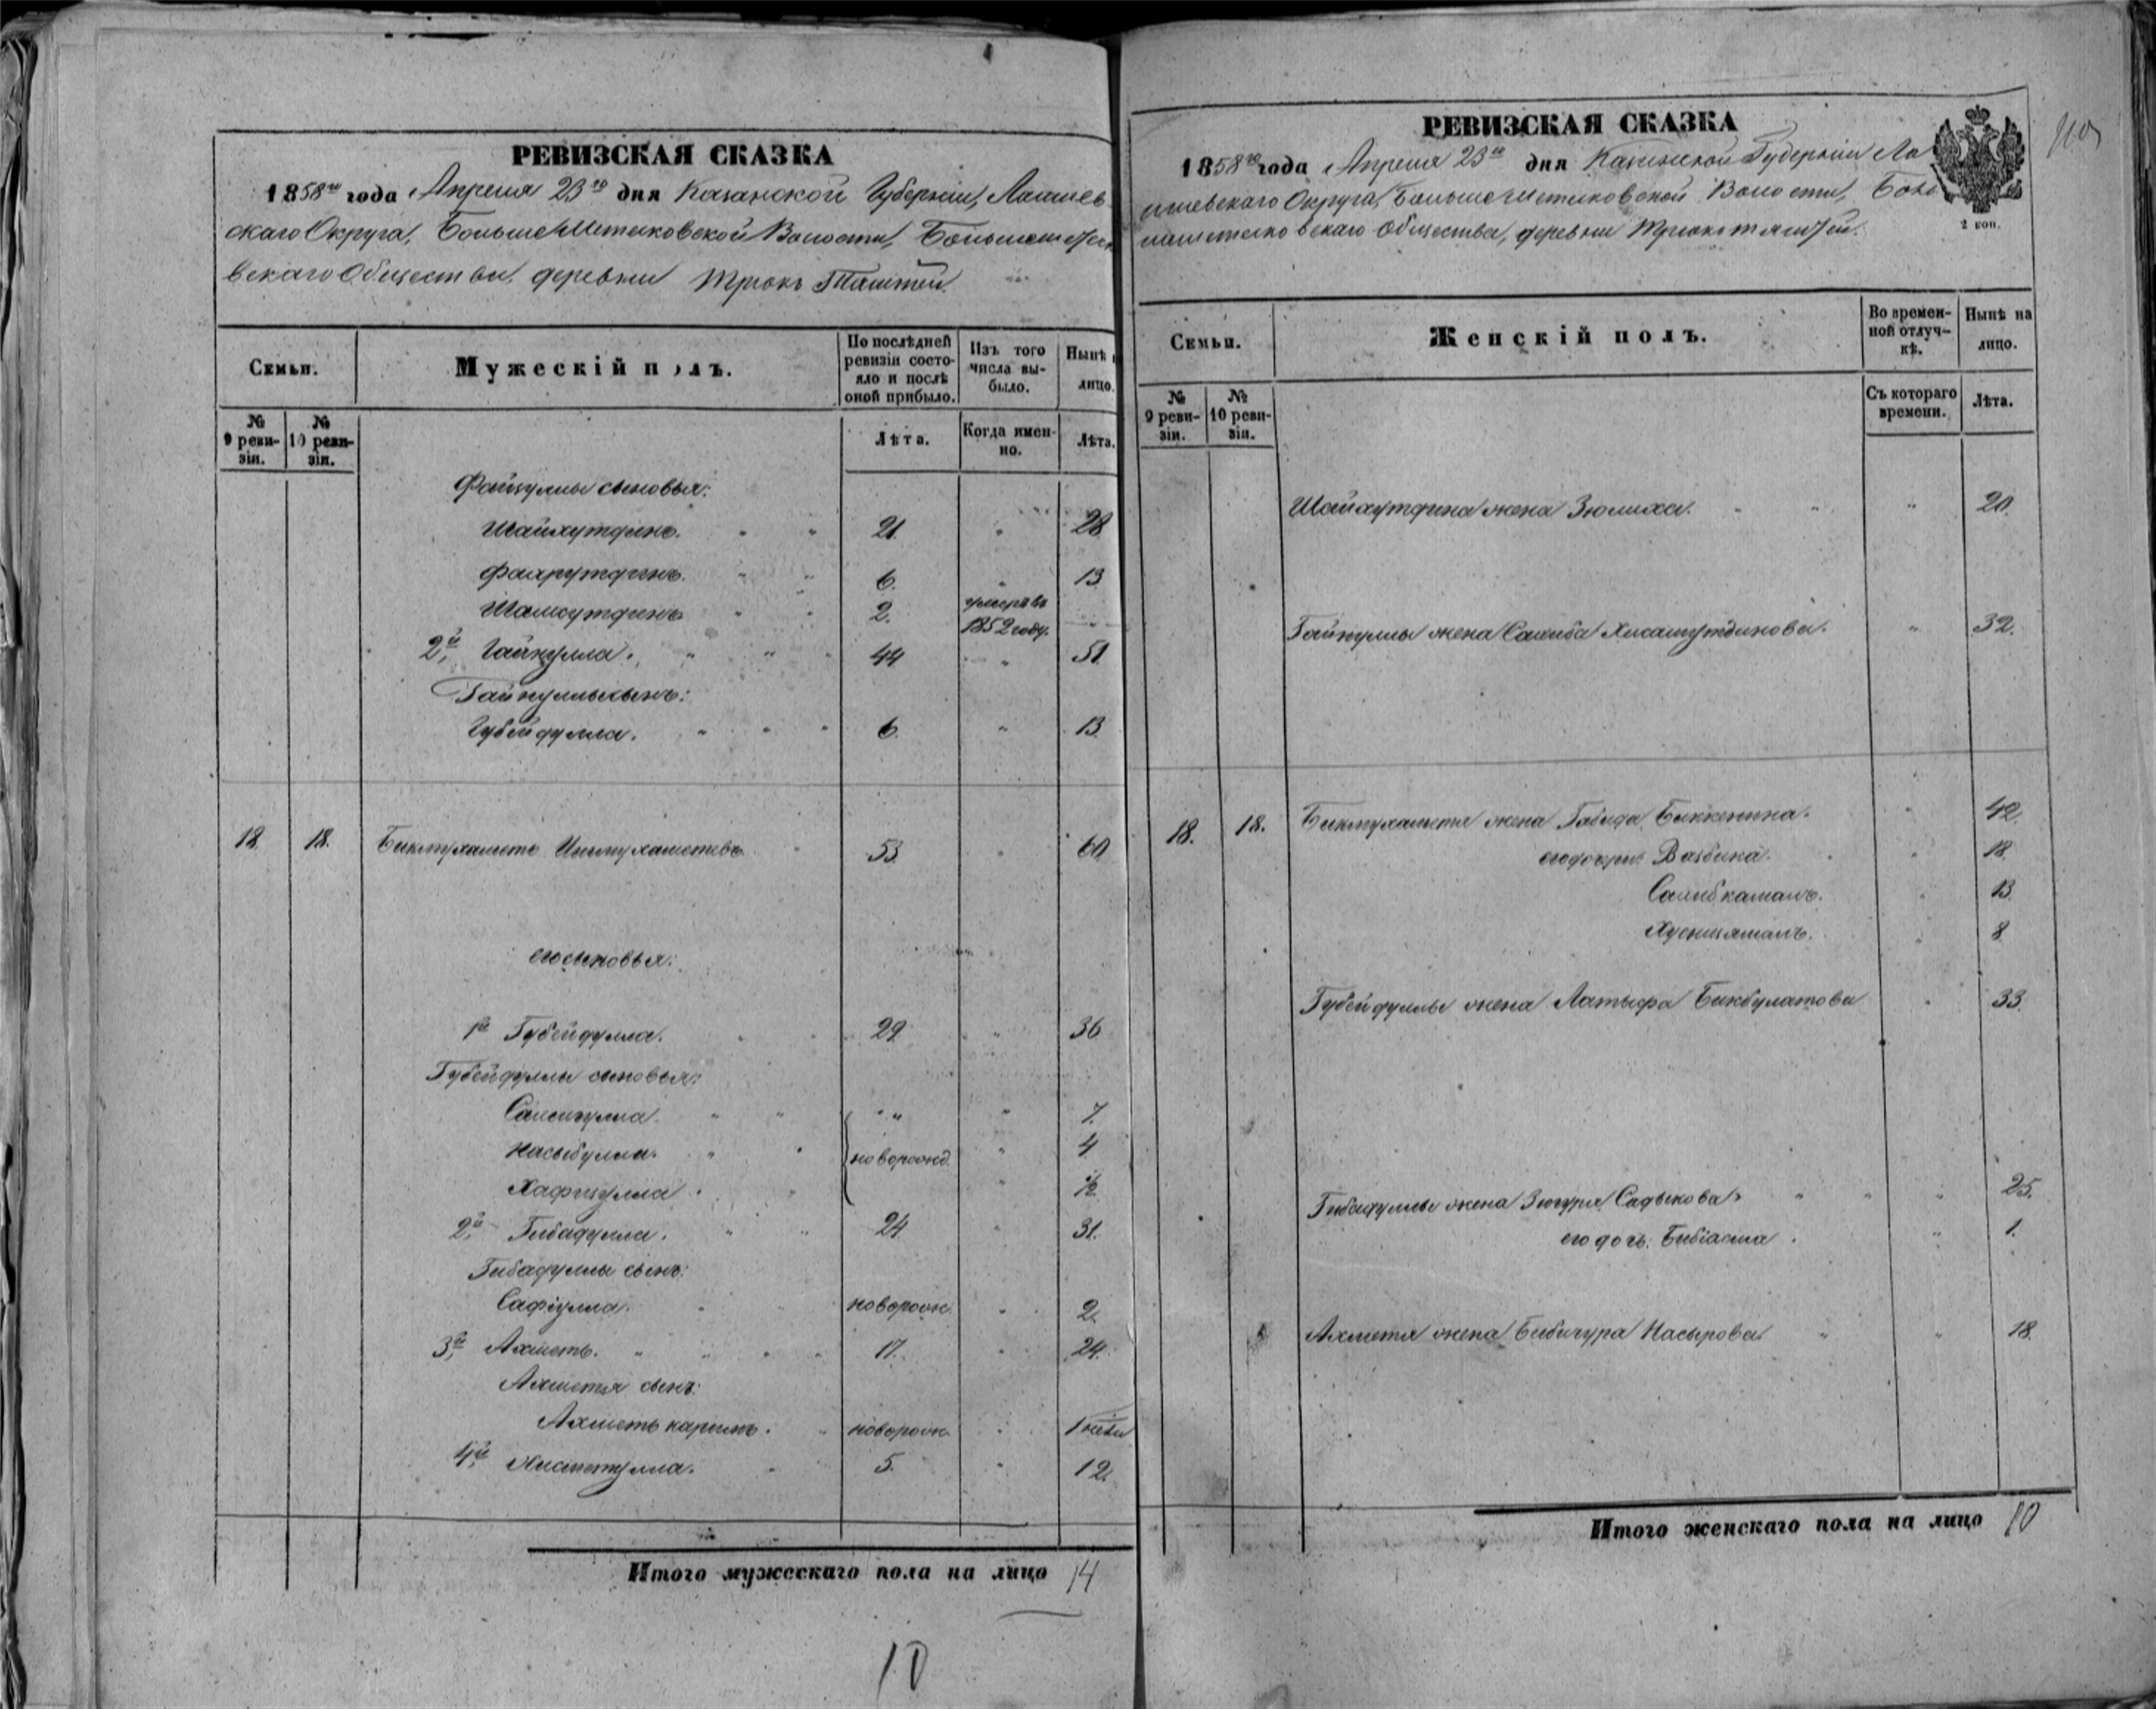 РЕВИЗСКАЯ СКАЗКА
1858го года Апреля 23го дня Казанской Губерніи, Лаишев
скаго Округа, Больше Метесковской Волости,
вскаго Общества, деревни Трюкъ Тямти.
Семьи.
Мужескій полъ.
По послѣдней ревизіи состояло и послѣ оной прибыло.
Изъ того числа выбыло.
Нынѣ лицо.
№ 9 ревизіи.
№ 10 ревизіи.
Лѣта.
Когда именно.
Лѣта.
Файзуллы сыновья:
Шайхутдинъ. 21. " 28
Фахрутдинъ. 6. " 13
Шамсутдинъ 2. умеръ въ 1852 году. "
2й, Гайнулла. 44 " 51
Гайнуллы сынъ:
Губейдулла. 6. " 13
18. 18. Бикмухаметъ 53. " 60
его сыновья:
1й Губейдулла. 29. " 36
Губейдуллы сыновья:
" " 7.
Насыбулла. новорожд. " 4
Хафизулла. " 1/2
2й, Гибадулла. 24 " 31.
Гибадуллы сынъ:
Сафіулла. новорож. " 2.
3й, Ахметь. 17. " 24.
Ахметя сынъ:
Ахметь каримъ. новорож. " 1 неделя
4й, 5. " 12.
Итого мужескаго пола на лицо 14
10
РЕВИЗСКАЯ СКАЗКА
1858го года Апреля 23го дня Казанской Губерніи Ла
ишевскаго Округа, Больше Метесковской Волости, Боль
шеметесковскаго Общества, деревни
2 коп.
Семьи.
Женскій полъ.
Во временной отлучкѣ.
Нынѣ на лицо.
№ 9 ревизіи.
№ 10 ревизіи.
Съ котораго времени.
Лѣта.
Шайхутдина жена Зюлиха. " 20.
Гайнуллы жена Сахиба Хисамутдинова. " 32.
18. 18. Бикмухаметя жена Габида Биккенина. " 42.
его дочри: Вазбика. " 18.
Сахибкамалъ. " 13.
" 8
Губейдуллы жена Латыфа Бикбулатова " 33.
Гибадуллы жена Зюгура Садыкова " 25.
его дочь: Бибіасма. " 1.
Ахметя жена Бибинура Насырова " 18.
Итого женскаго пола на лицо 10